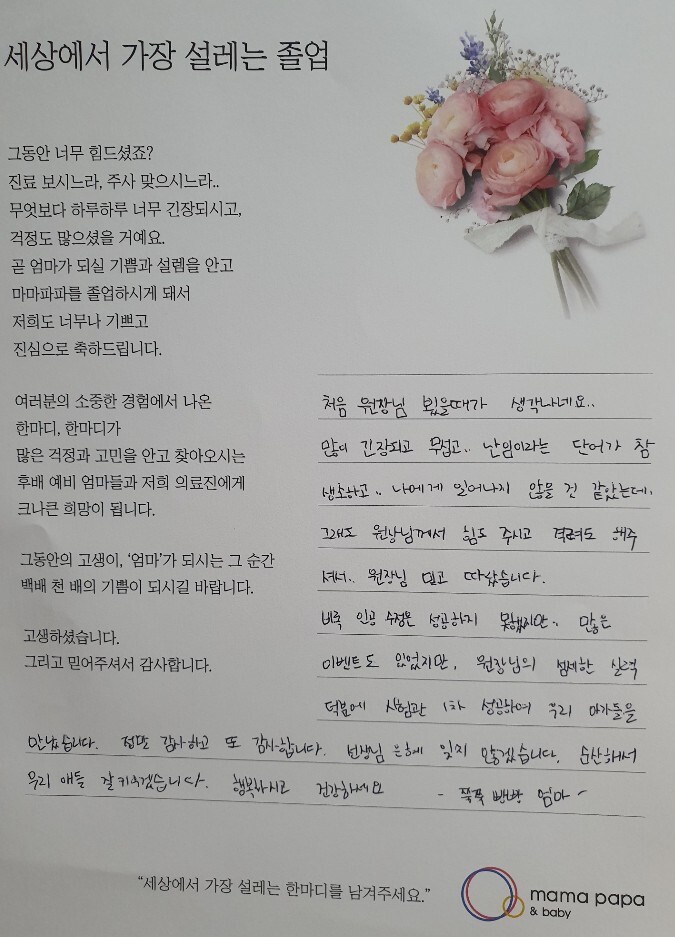 세상에서 가장 설레는 졸업
그동안 너무 힘드셨죠?
진료 보시느라, 주사 맞으시느라..
무엇보다 하루하루 너무 긴장되시고,
걱정도 많으셨을 거예요.
곧 엄마가 되실 기쁨과 설렘을 안고
마마파파를 졸업하시게 돼서
저희도 너무나 기쁘고
진심으로 축하드립니다.
여러분의 소중한 경험에서 나온
한마디, 한마디가
많은 걱정과 고민을 안고 찾아오시는
후배 예비 엄마들과 저희 의료진에게
크나큰 희망이 됩니다.
그동안의 고생이, '엄마'가 되시는 그 순간
백배 천 배의 기쁨이 되시길 바랍니다.
고생하셨습니다.
그리고 믿어주셔서 감사합니다.
처음 원장님 뵜을때가 생각나네요..
많이 긴장되고 무섭고.. 난임이라는 단어가 참
생소하고.. 나에게 일어나지 않을 건 같았는데.
그래도 원장님께서 힘도 주시고 격려도 해주
셔서.. 원장님 믿고 따랐습니다.
비록 인공 수정은 성공하지 못했지만.. 많은
이벤트도 있었지만, 원장님의 섬세한 실력
덕분에 시험관 1차 성공하여 우리 아가들을
만났습니다. 정말 감사하고 또 감사합니다. 선생님 은혜 잊지 않겠습니다. 순산해서
우리 애들 잘 키우겠습니다. 행복하시고 건강하세요 - 쭉쭉 빵빵 엄마 -
"세상에서 가장 설레는 한마디를 남겨주세요."
mama papa
& baby